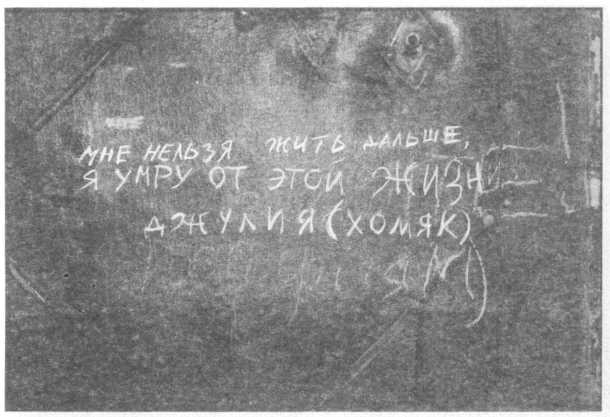 МНЕ НЕЛЬЗЯ ЖИТЬ ДАЛЬШЕ,
Я УМРУ ОТ ЭТОЙ ЖИЗНИ
ДЖУЛИЯ (ХОМЯК)